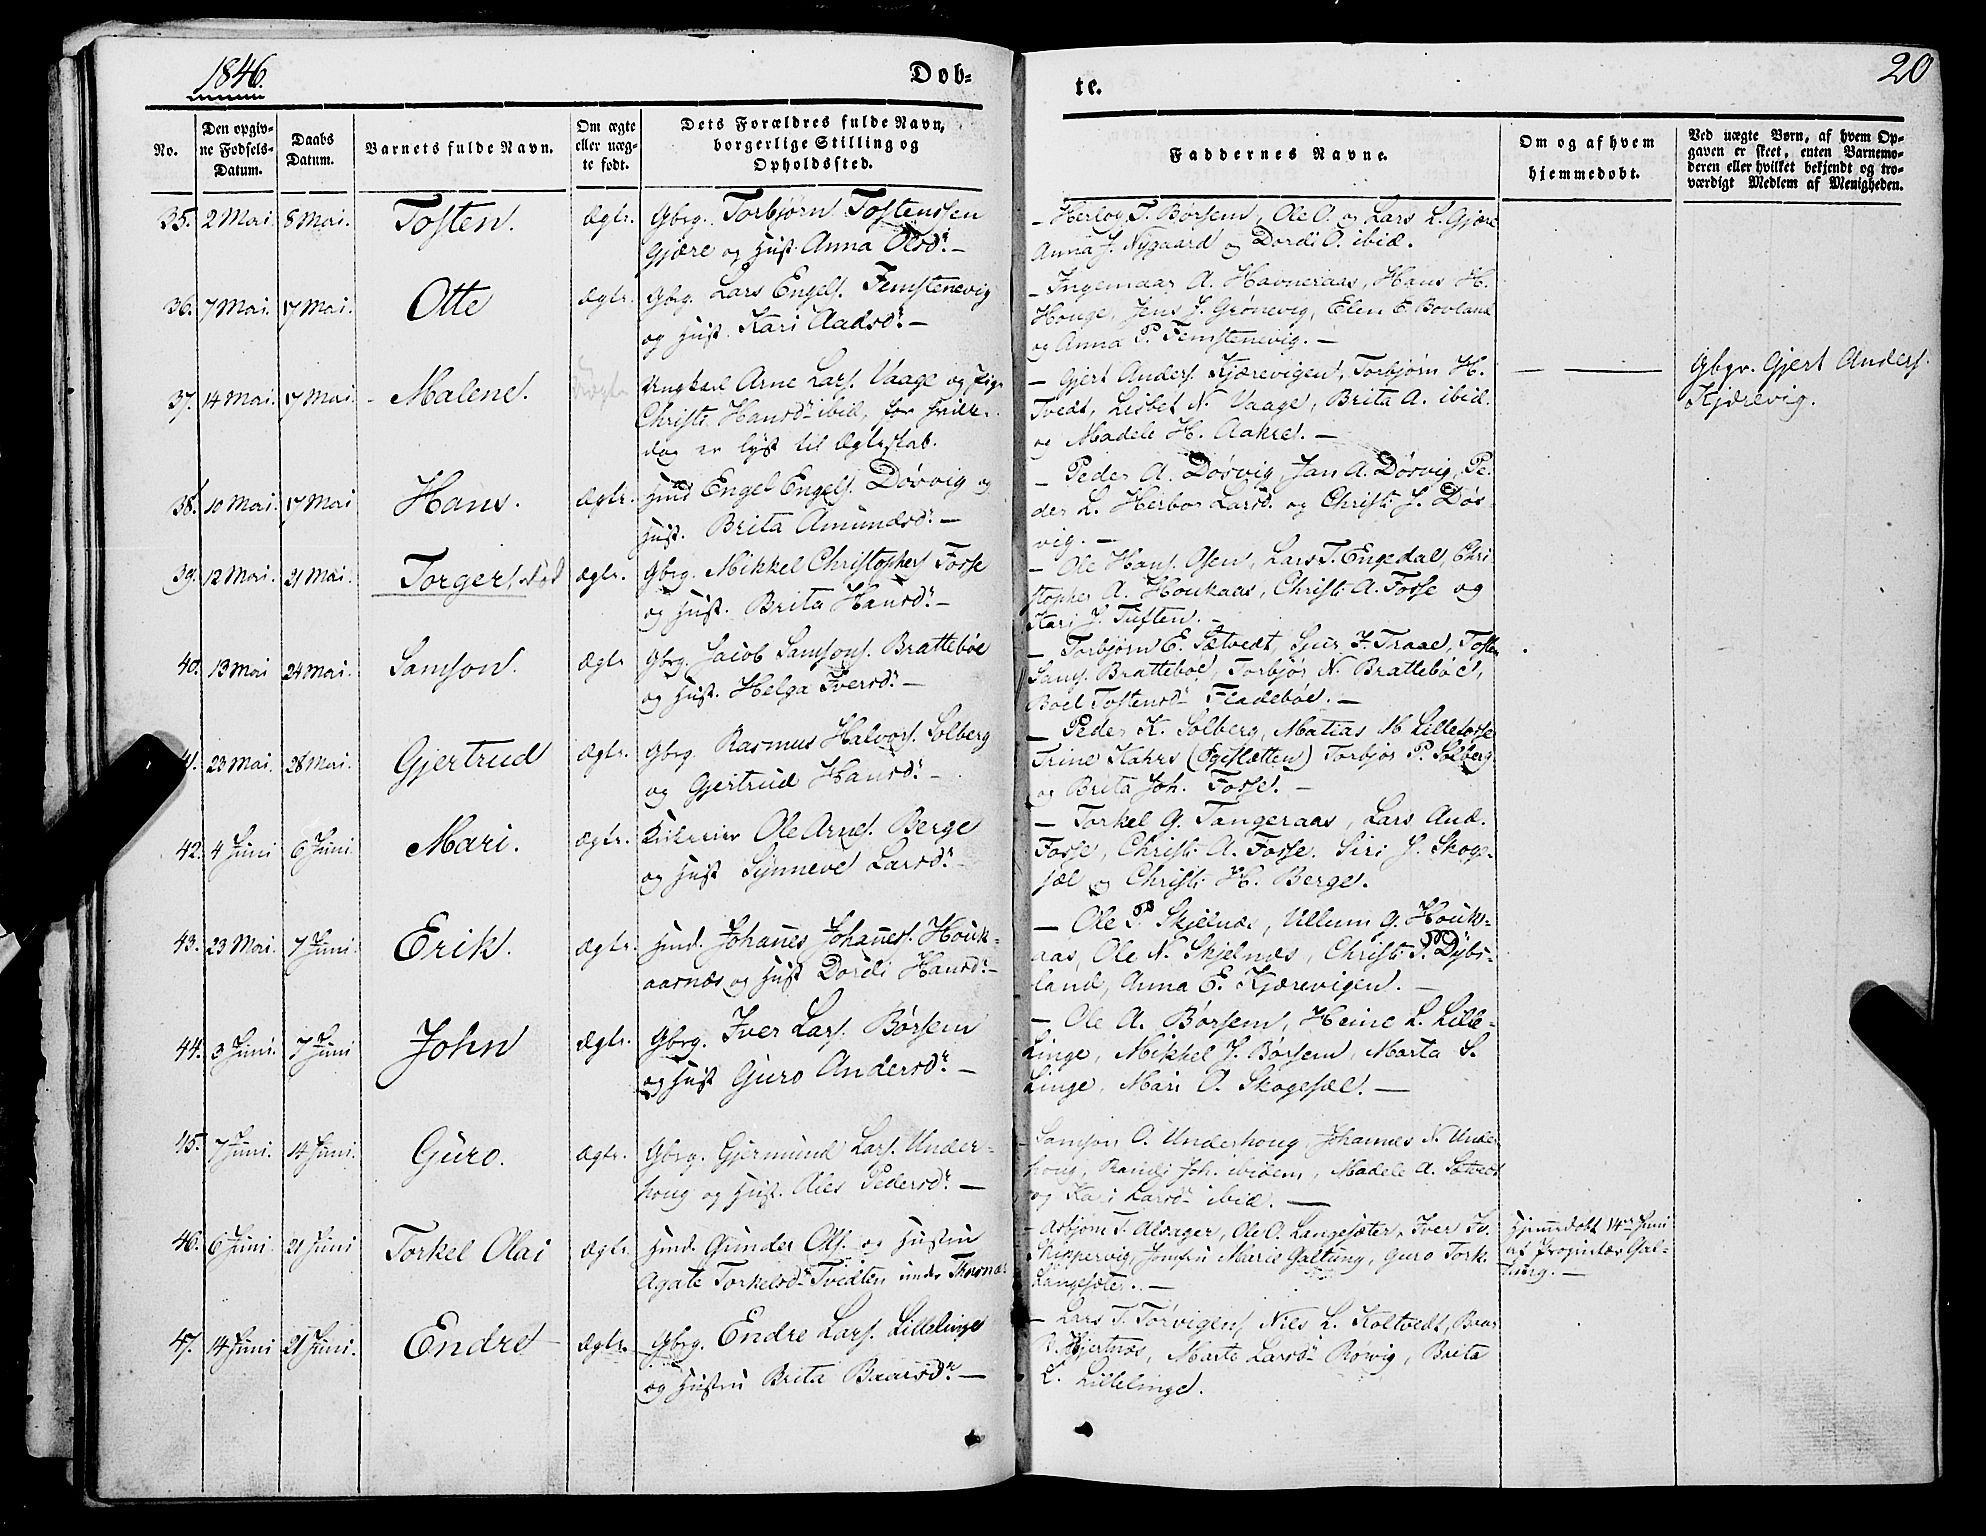 1846.
Døb-
te.
20
No.
Den opgiv-
ne Fødsels-
Datum.
Daabs
Datum.
Barnets fulde Navn.
Om ægte
eller uæg-
te født.
Dets Forældres fulde Navn,
borgerlige Stilling og
Opholdssted.
Faddernes Navne.
Om og af hvem
hjemmedøbt.
Ved uægte Børn, af hvem Op-
gaven er skeet, enten Barnemo-
deren eller hvilket bekjendt og tro-
værdigt Medlem af Menigheden.
35. 2 Mai. 8 Mai. Tosten. ægte. Gbrg. Torbjørn Tostenssen
Gjære og Hust. Anna Olsdr. —
— Herlog T. Børsem, Ole O. og Lars L. Gjære
Anna J. Nygaard og Dordi O. ibid.
36. 7 Mai. 17 Mai. Otte ægte. Gbrg. Lars Engels. Femstenevig
og Hust. Kari Aadsdr. —
— Ingemaar A. Havneraas, Hans H.
Houge, Jens J. Grønevig, Elen E. Bovland
og Anna P. Femstenevig. —
37. 14 Mai. 17 Mai. Malene. Uægte Ungkarl Arne Lars. Vaage og Pige
Christi Hansdr ibid, for hvilke
dog er lyst til Ægteskab.
— Gjert Anders. Kjærevigen, Torbjørn H.
Tvedt, Lisbet N. Vaage, Brita A. ibid.
og Madele H. Aakre. —
Gbgr. Gjert Anders.
Kjærevig.
38. 10 Mai. 17 Mai Hans. ægte. Huusmd Engel Engels. Døsvig og
Hust. Brita Amundsdr. —
— Peder A. Døsvig, Jan A. Døsvig, Pe-
der L. Herbor Larsd. og Christi J. Døs
vig. —
39. 12 Mai. 21 Mai. Torger død ægte. Gbrg. Mikkel Christopher Fosse
og Hust. Brita Hansdr. —
— Ole Hans. Osen, Lars T. Engedal, Chri
stopher A. Houkaas, Christi A. Fosse og
Kari J. Tuften. —
40. 13 Mai 24 Mai. Samson. ægte Gbrg. Jacob Samsons. Brattebøe
og Hust. Helga Iversdr. —
— Torbjørn E. Sætvedt, Sjur J. Traae, Tosten
Sams. Brattebøe, Torbjør N. Brattebøe,
Boel Tostensdr Fladebøe. —
41. 23 Mai. 28 Mai. Gjertrud ægte. Gbrg. Rasmus Halvors. Solberg
og Gjertrud Hansdr. —
— Peder K. Solberg, Matias M. Lillefosse
Trine Kahrs (Egeslætten) Torbjør P. Solberg
og Brita Joh. Fosse. —
42. 4 Juni 6 Juni Mari. ægte. Ole Arnes. Berge
og Hust Synneve Larsdr. —
— Torkel G. Tangeraas, Lars And.
Fosse, Christi A. Fosse. Siri J. Skoge-
sæl og Christi H. Berge.
43. 23 Mai. 7 Juni. Erik. ægte. Huusmd. Johanes Johanes. Houk-
aasnæs og Hust Dordi Hansdr. —
— Ole P Skjelnæs, Villum G. Houk-
aas, Ole N. Skjelnæs, Christi P. Dybs-
land, Anna E. Kjærevigen. —
44. 3 Juni. 7 Juni John ægte. Gbrg. Iver Lars. Børsem
og Hust Guro Andersdr. —
— Ole A. Børsem, Heine L. Lille-
Linge, Mikkel J. Børsem, Marta S.
Linge, Mari A. Skogesæl. —
45. 7 Juni. 14 Juni. Guro. ægte. Gbrg. Gjermund Lars. Under-
houg og Hust. Ales Pedersdr. —
— Samson O. Underhoug, Johannes N. Under
houg, Randi Joh. ibidem, Madele A. Sætvedt
og Kari Larsdr ibid. —
46. 6 Juni. 21 Juni Torkel Olai ægte. Huusmd. Gunder Ols. og Hustru
Agate Torkelsdr Tvedten under Thornæs
— Asbjørn T. Alsager, Ole O. Langesæter, Iver Iv.
Skippervig, Jomfru Marie Galtung, Guro Tork.
Langesæter. —
Hjemmedøbt 14de Juni
af Proprietær Gal-
tung. —
47. 14 Juni 21 Juni. Endre ægte. Gbrg. Endre Lars. Lillelinge
og Hustru Brita Baarsdr. —
— Lars T. Tørvigen, Niels L. Koltvedt, Baar
B. Hjertnæs, Marte Larsdr Røvig, Brita
L. Lillelinge.